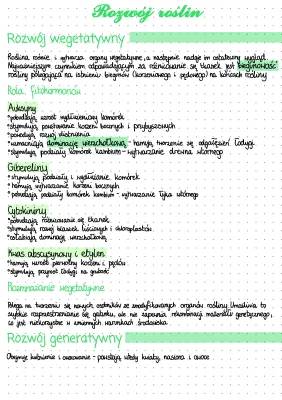 Rozwój roślin
Rozwój wegetatywny
Roślina rośnie i wytwarza organy wegetatywne, a następnie nadaje im ostateczny wygląd.
Najważniejszym czynnikiem odpowiadającym za różnicowanie się tkanek jest biegunowość
rośliny polegająca na istnieniu biegunów (korzeniowego i pędowego) na końcach rośliny
Rola fitohormonów
Auksyny
*powodują wzrost wydłużeniowy komórek
*stymulują powstawanie korzeni bocznych i przybyszowych
*powodują rozwój
*wzmacniają dominację wierzchołkową - hamują tworzenie się odgałęzień łodygi
*stymulują podziały komórek kambium - wytwarzanie drewna wtórnego
Gibereliny
*stymulują podziały i wydłużanie komórek
*hamują wytwarzanie korzeni bocznych
*powodują podziały komórek kambium - wytwarzanie łyka wtórnego
Cytokininy
*pobudzają różnicowanie się tkanek
*stymulują rozwój blaszek liściowych i chloroplastów
*osłabiają dominację wierzchołkową
Kwas abscysynowy i etylen
*hamują wzrost pierwotny korzeni i pędów
*stymulują przyrost łodygi na grubość
Rozmnażanie wegetatywne
Polega na tworzeniu się nowych osobników ze zmodyfikowanych organów rośliny. Umożliwia to
szybkie rozprzestrzenianie się gatunku, ale nie zapewnia rekombinacji materiału genetycznego,
co jest niekorzystne w zmiennych warunkach środowiska
Rozwój generatywny
Obejmuje kwitnienie i owocowanie - powstają wtedy kwiaty, nasiona i owoce